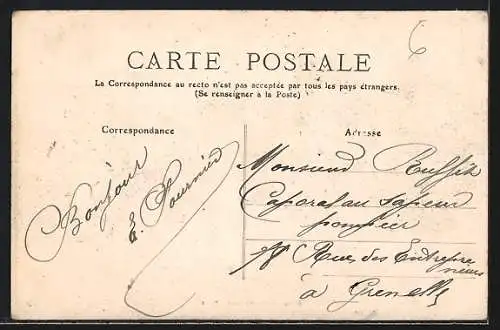 6
CARTE POSTALE
La Correspondance au recto n'est pas acceptée par tous les pays étrangers.
(Se renseigner à la Poste)
Correspondance
Bonjour
E. Fournier
Adresse
Monsieur
Caporal au sapeur
pompier
18 Rue des Entrepre
neurs
à Grenelle